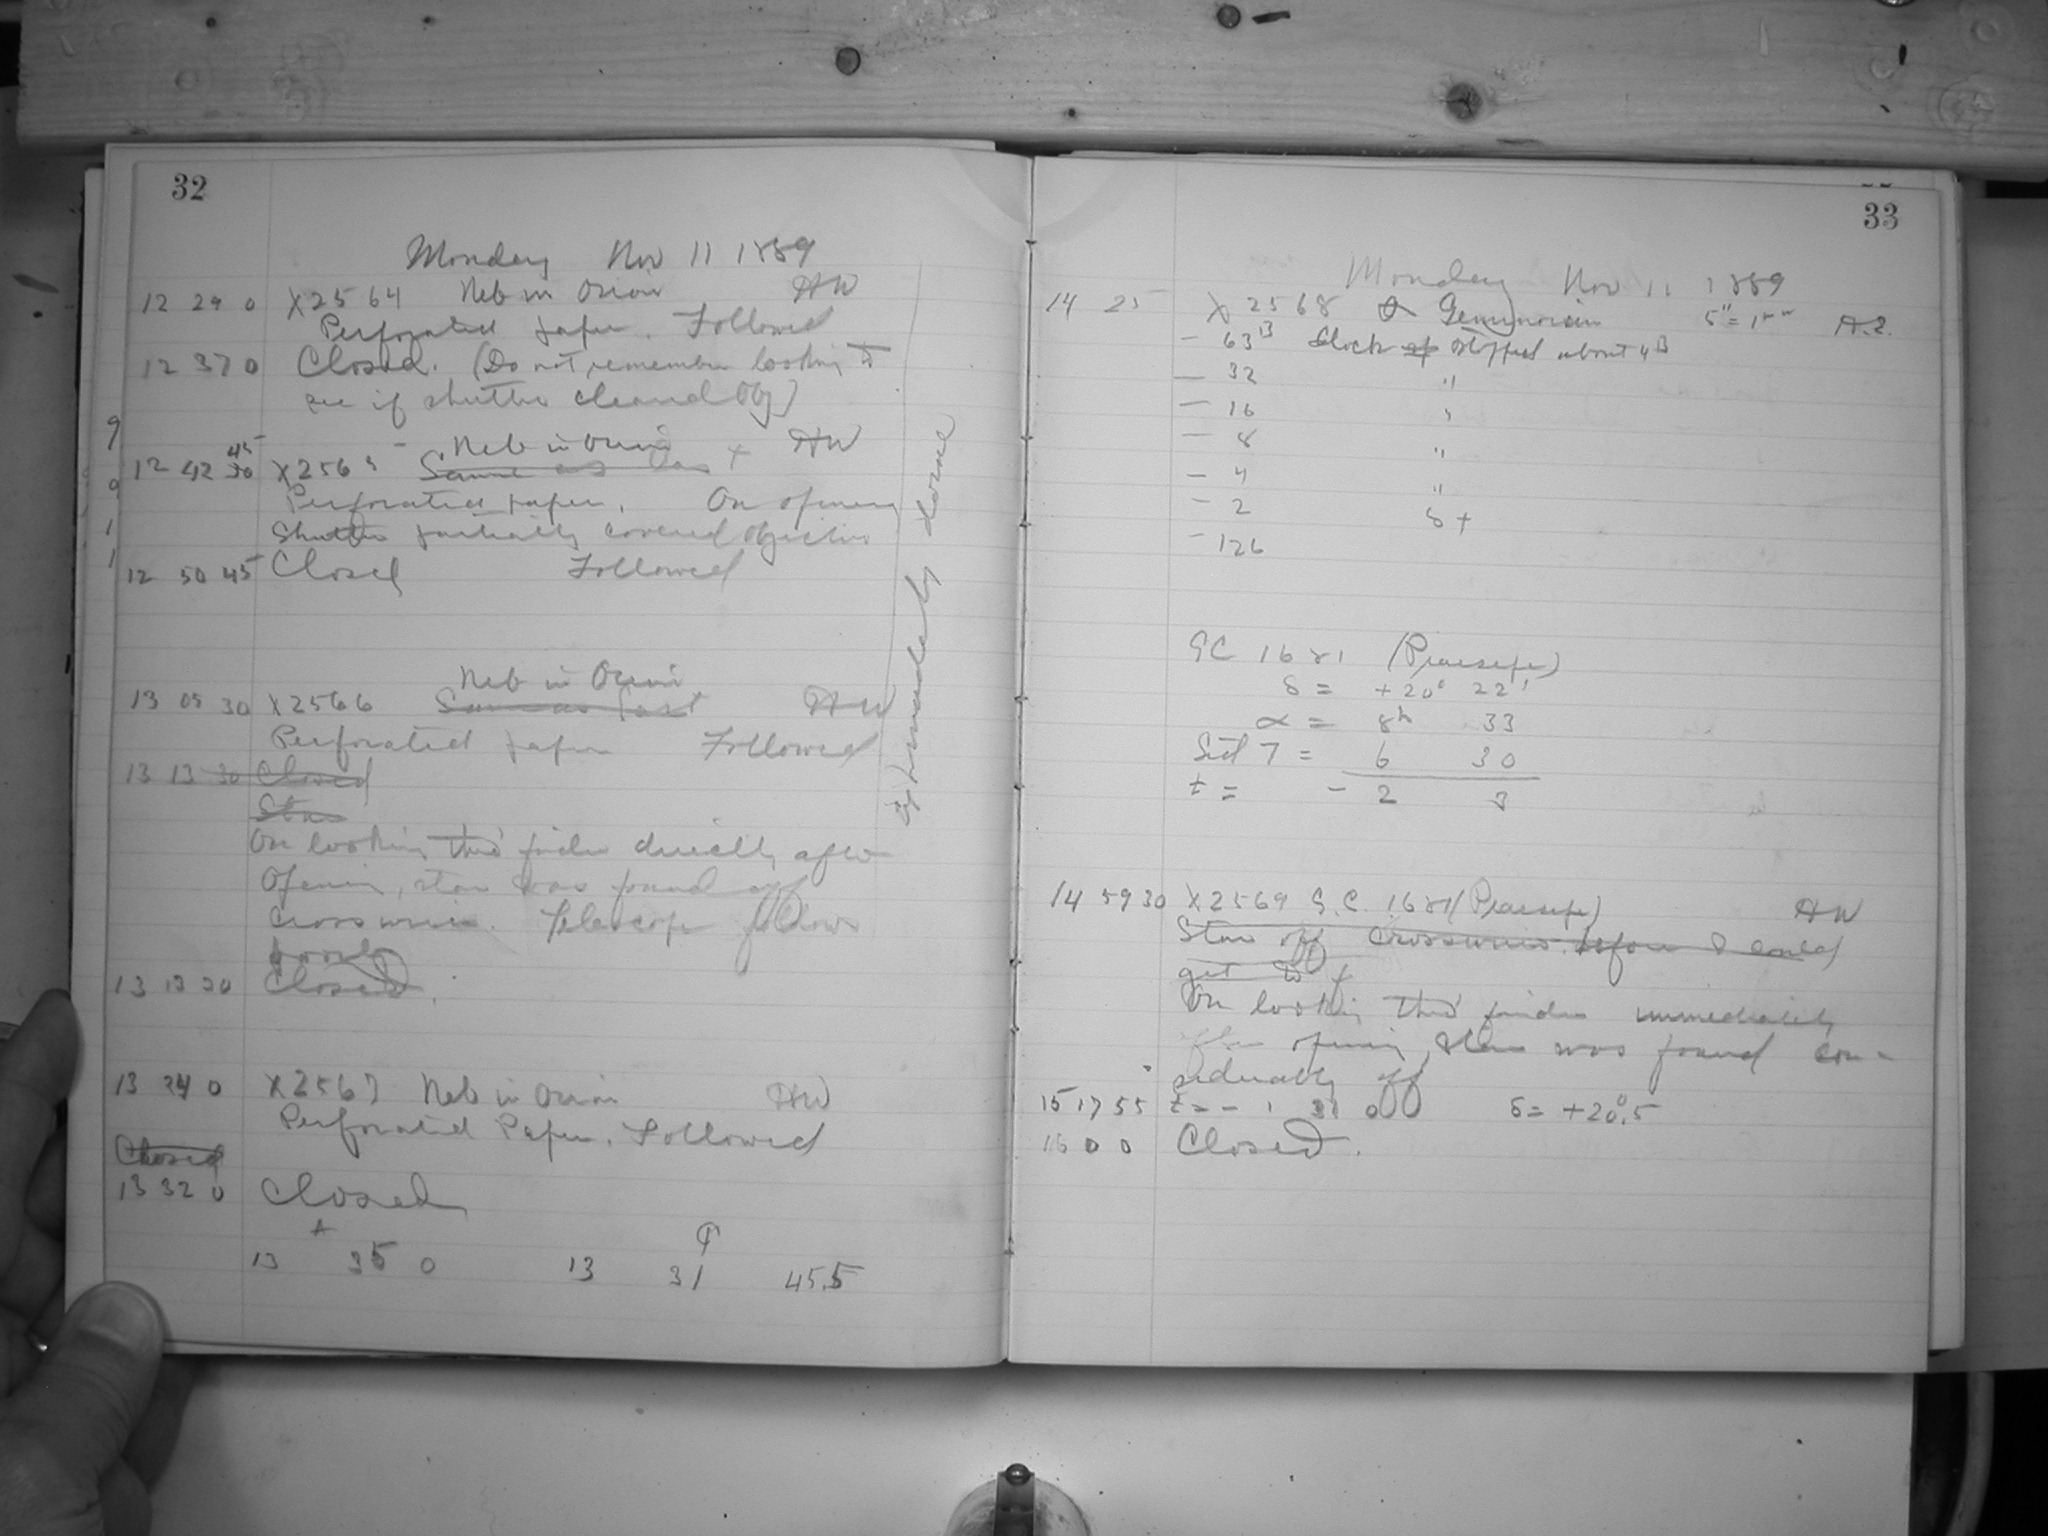 32
Monday Nov 11 1889
12 29 0 X2564 Neb in Orion AW
Perforated paper. Followed
12 37 0 Closed. (Do not remember looking to
see if shutter cleared Obj)
12 42 30 45 X2565 Neb in Orion AW
Same as last
Perforated paper. On opening
Shutter partially covered Objective
12 50 45 Closed Followed
immediately closed
Neb in Orion
13 05 30 X2566 Same as last AW
Perforated paper Followed
13 13 30 Closed
Star
On looking thro' finder directly after
Opening, star was found off
Crosswires. Telescope follows
poorly
13 13 30 Closed.
13 24 0 X2567 Neb in Orion AW
Perforated Paper. Followed
Closed
13 32 0 Closed
13 35 0 13 31 45.5
33
Monday Nov 11 1889
14 25 X2568 Geminorum 5" = 1
- 63 Clock stopped about 4
- 32 "
- 16 "
- 8 "
- 4 "
- 2
- 126
GC 1681 (Praesepe)
δ = +20° 22'
α = 8h 33
Sid T = 6 30
t = - 2 3
14 59 30 X2569 G.C. 1681 (Praesepe) AW
Star off crosswires before I could
get to
On looking thro' finder immediately
after opening, star was found con-
siderably off
15 17 55 t = - 1 31 0 δ = +20°.5
16 0 0 Closed.